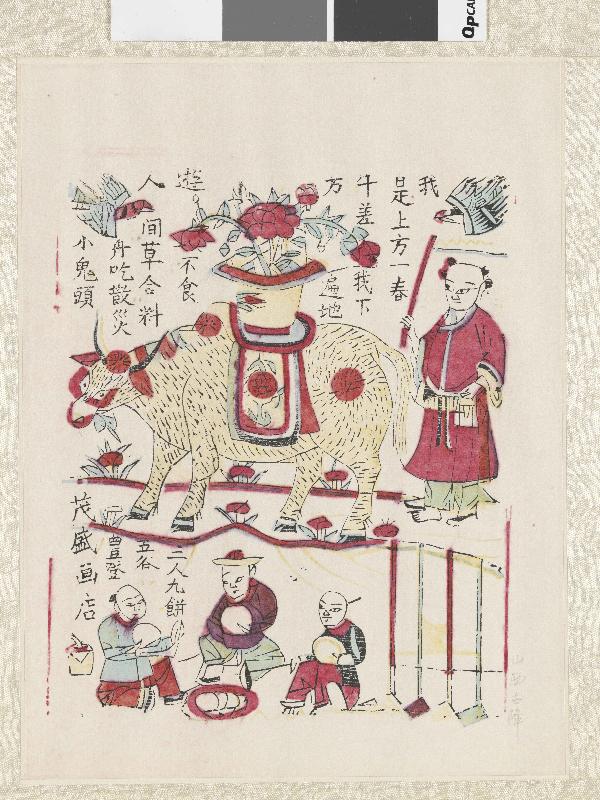 我
是上方一春
牛差我下
方遍地
遊不食
人間草合料
吃散災
小鬼頭
三人九餅
五谷
豊登
茂盛画店
QPCA